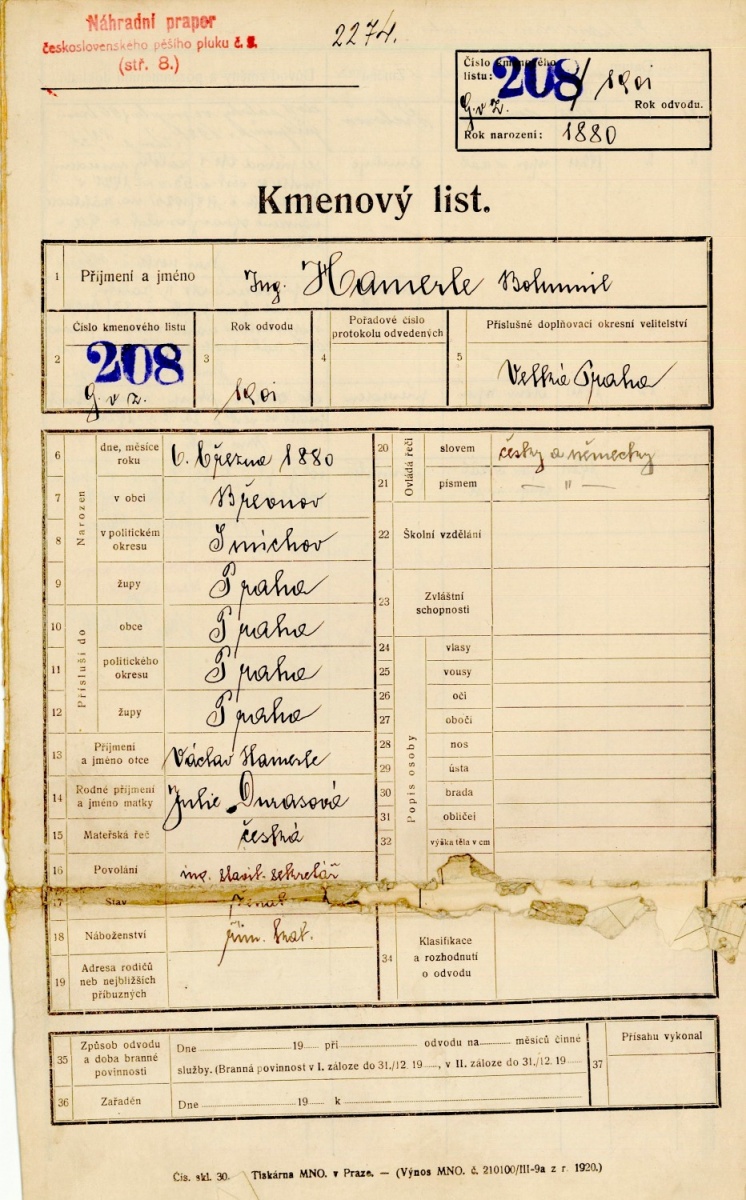 Náhradní prapor
československého pěšího pluku č. 8.
(stř. 8.)
2274.
Číslo kmenového
listu: 208 / 1901
G. v Z.
Rok odvodu.
Rok narození: 1880
Kmenový list.
1 Příjmení a jméno Ing. Hamerle Bohumil
2 Číslo kmenového listu 208 G. v Z.
3 Rok odvodu 1901
4 Pořadové číslo
protokolu odvedených
5 Příslušné doplňovací okresní velitelství
Velká Praha
Narozen
6 dne, měsíce
roku 6. března 1880
7 v obci Břevnov
8 v politickém
okresu Smíchov
9 župy Praha
Přísluší do
10 obce Praha
11 politického
okresu Praha
12 župy Praha
13 Příjmení
a jméno otce Václav Hamerle
14 Rodné příjmení
a jméno matky Julie Durasová
15 Mateřská řeč česká
16 Povolání ing. stavit. sekretář
17 Stav ženat
18 Náboženství řím. kat.
19 Adresa rodičů
neb nejbližších
příbuzných
Ovládá řeči
20 slovem česky a německy
21 písmem — " —
22 Školní vzdělání
23 Zvláštní
schopnosti
Popis osoby
24 vlasy
25 vousy
26 oči
27 obočí
28 nos
29 ústa
30 brada
31 obličej
32 výška těla v cm
34 Klasifikace
a rozhodnutí
o odvodu
35 Způsob odvodu
a doba branné
povinnosti
Dne 19 při odvodu na měsíců činné
služby. (Branná povinnost v I. záloze do 31./12. 19 , v II. záloze do 31./12. 19
36 Zařaděn Dne 19 k
37 Přísahu vykonal
Čís. skl. 30. Tiskárna MNO. v Praze. — (Výnos MNO. č. 210100/III-9a z r. 1920.)